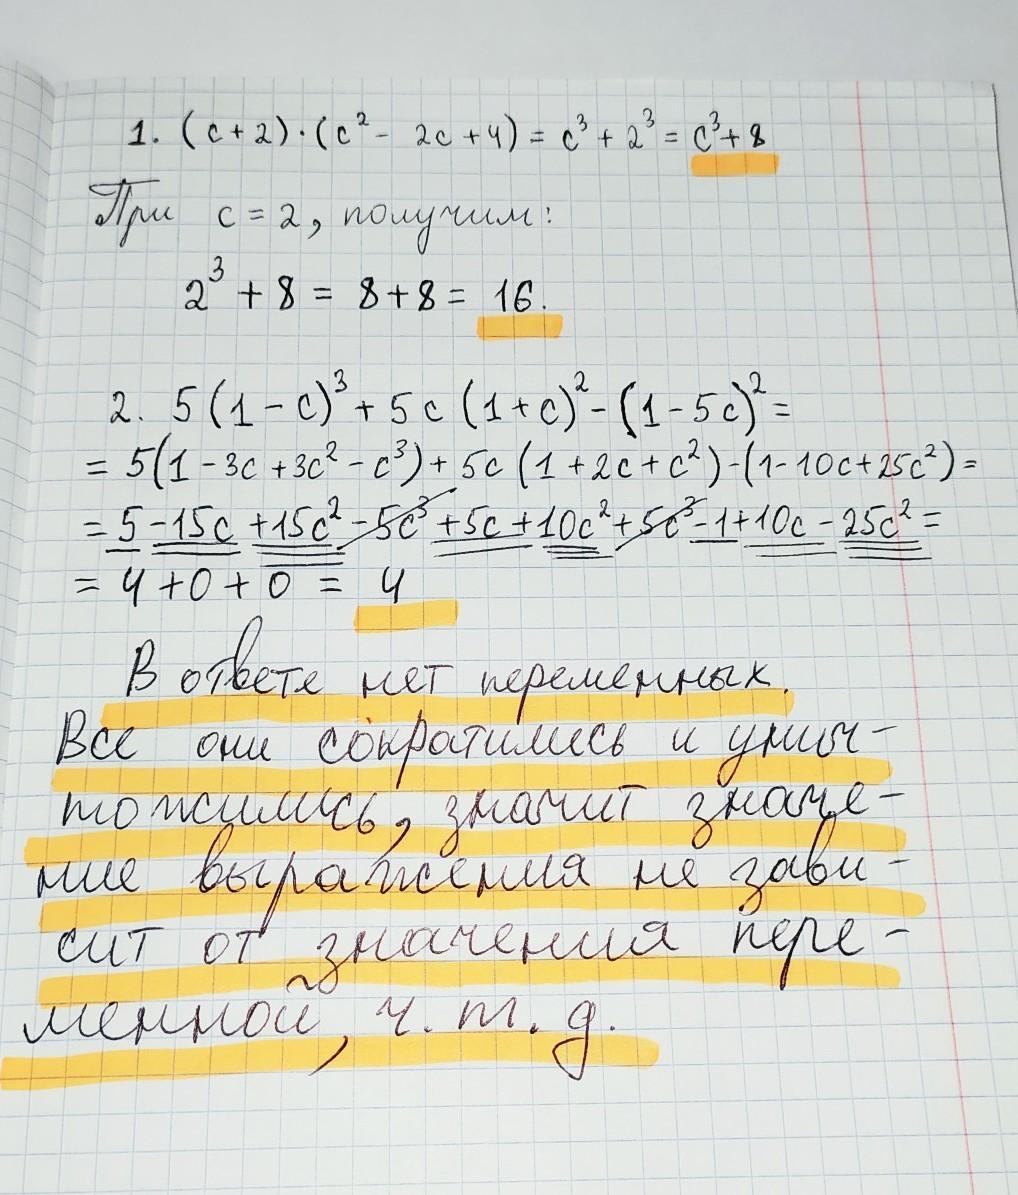 1. (c+2)·(c² - 2c+4) = c³ + 2³ = c³+8
При c=2, получим:
2³ + 8 = 8+8 = 16.
2. 5(1-c)³ + 5c(1+c)² - (1-5c)² =
= 5(1-3c+3c²-c³) + 5c(1+2c+c²)-(1-10c+25c²) =
= 5-15c+15c²-5c³+5c+10c²+5c³-1+10c-25c² =
= 4+0+0 = 4
В ответе нет переменных.
Все они сократились и унич-
тожились, значит значе-
ние выражения не зави-
сит от значения пере-
менной, ч.т.д.